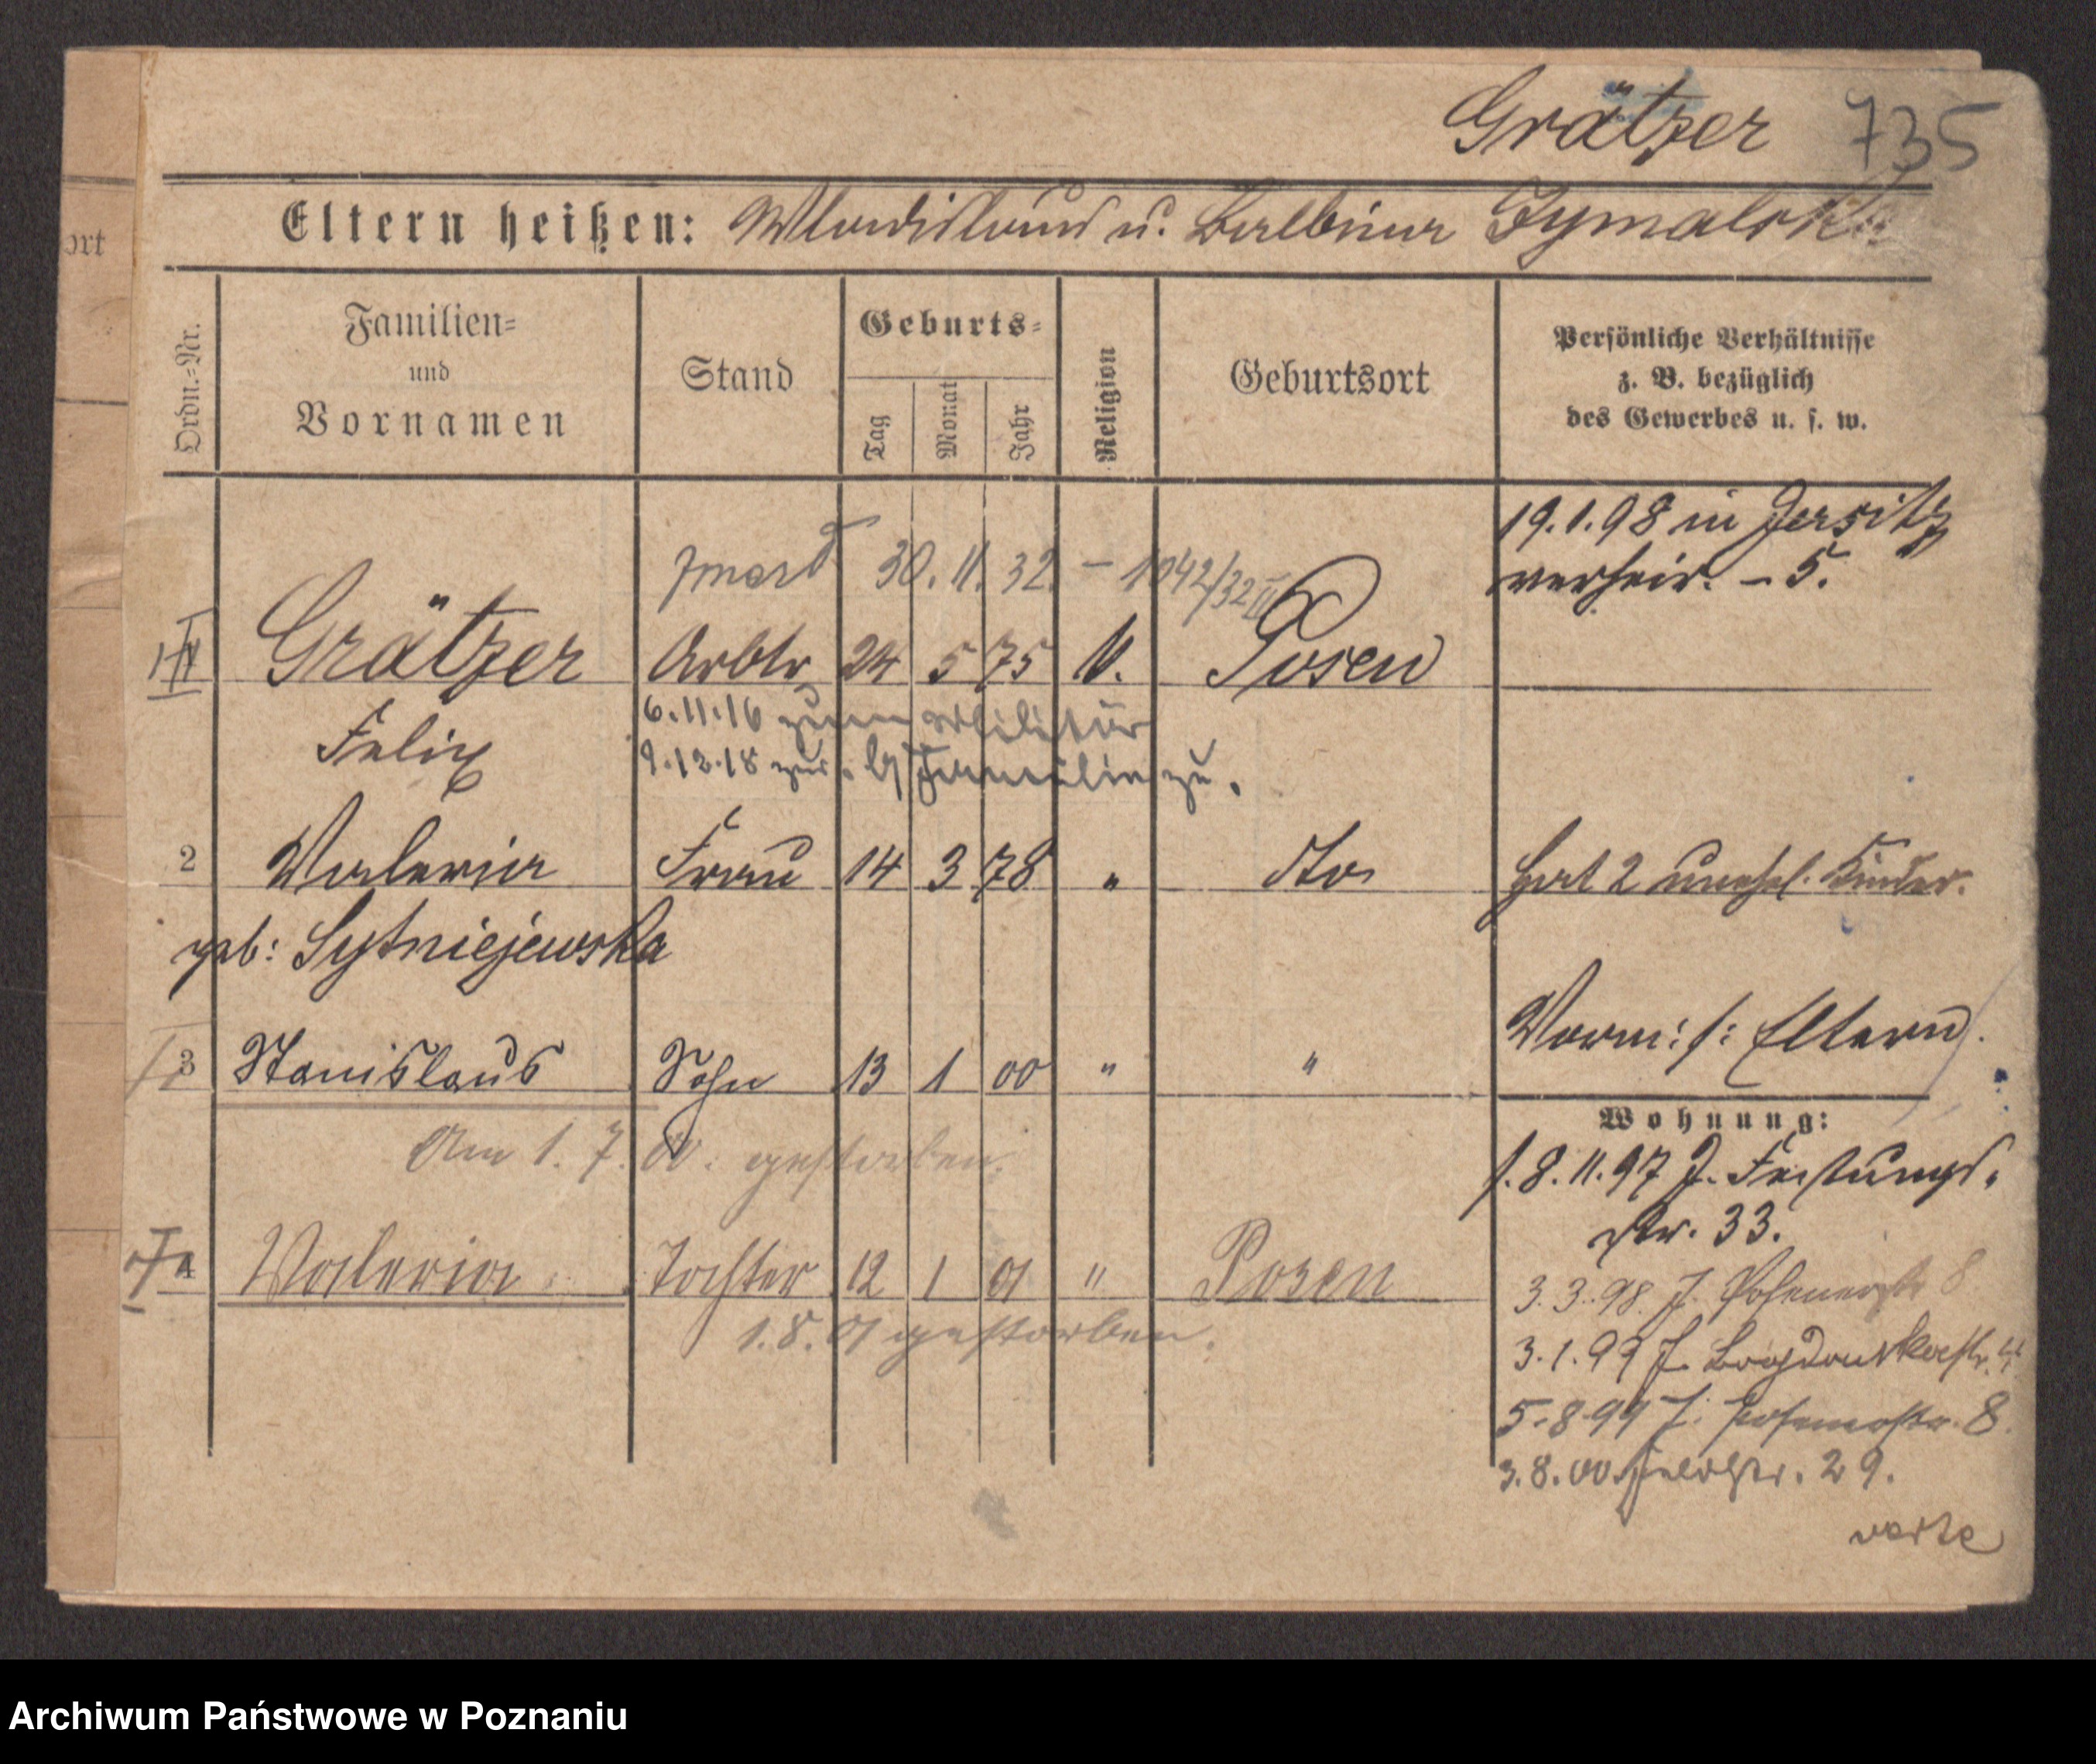 Grätzer 735
Eltern heißen: Wladislaus u. Balbina Szymalska
Ordn.-Nr.
Familien- und Vornamen
Stand
Geburts-
Tag Monat Jahr
Religion
Geburtsort
Persönliche Verhältnisse
z. B. bezüglich
des Gewerbes u. s. w.
19.1.98 in Jersitz
verheir. – 5.
zmarł 30.11.32. – 1042/32 II
Grätzer Arbtr 24 5 75 k. Posen
6.11.16 zum Militär
Felix
9.12.18 zur. b/ Familie zu.
2 Valeria Frau 14 3 78 " dto Hat 2 unehel. Kinder.
geb: Sytniejewska
Vorm: s: Eltern.
3 Stanislaus Sohn 13 1 00 " "
Wohnung:
Am 1. 7. 00. gestorben.
s. 8.11.97 J. Festungs-
str. 33.
4 Valeria Tochter 12 1 01 " Posen
3.3.98. J. Posenerstr 8
1.8.01 gestorben.
3.1.99 J. Bogdankastr. 4
5.8.99 J. Posenerstr. 8.
3.8.00 Feldstr. 29.
verte
ort
Archiwum Państwowe w Poznaniu